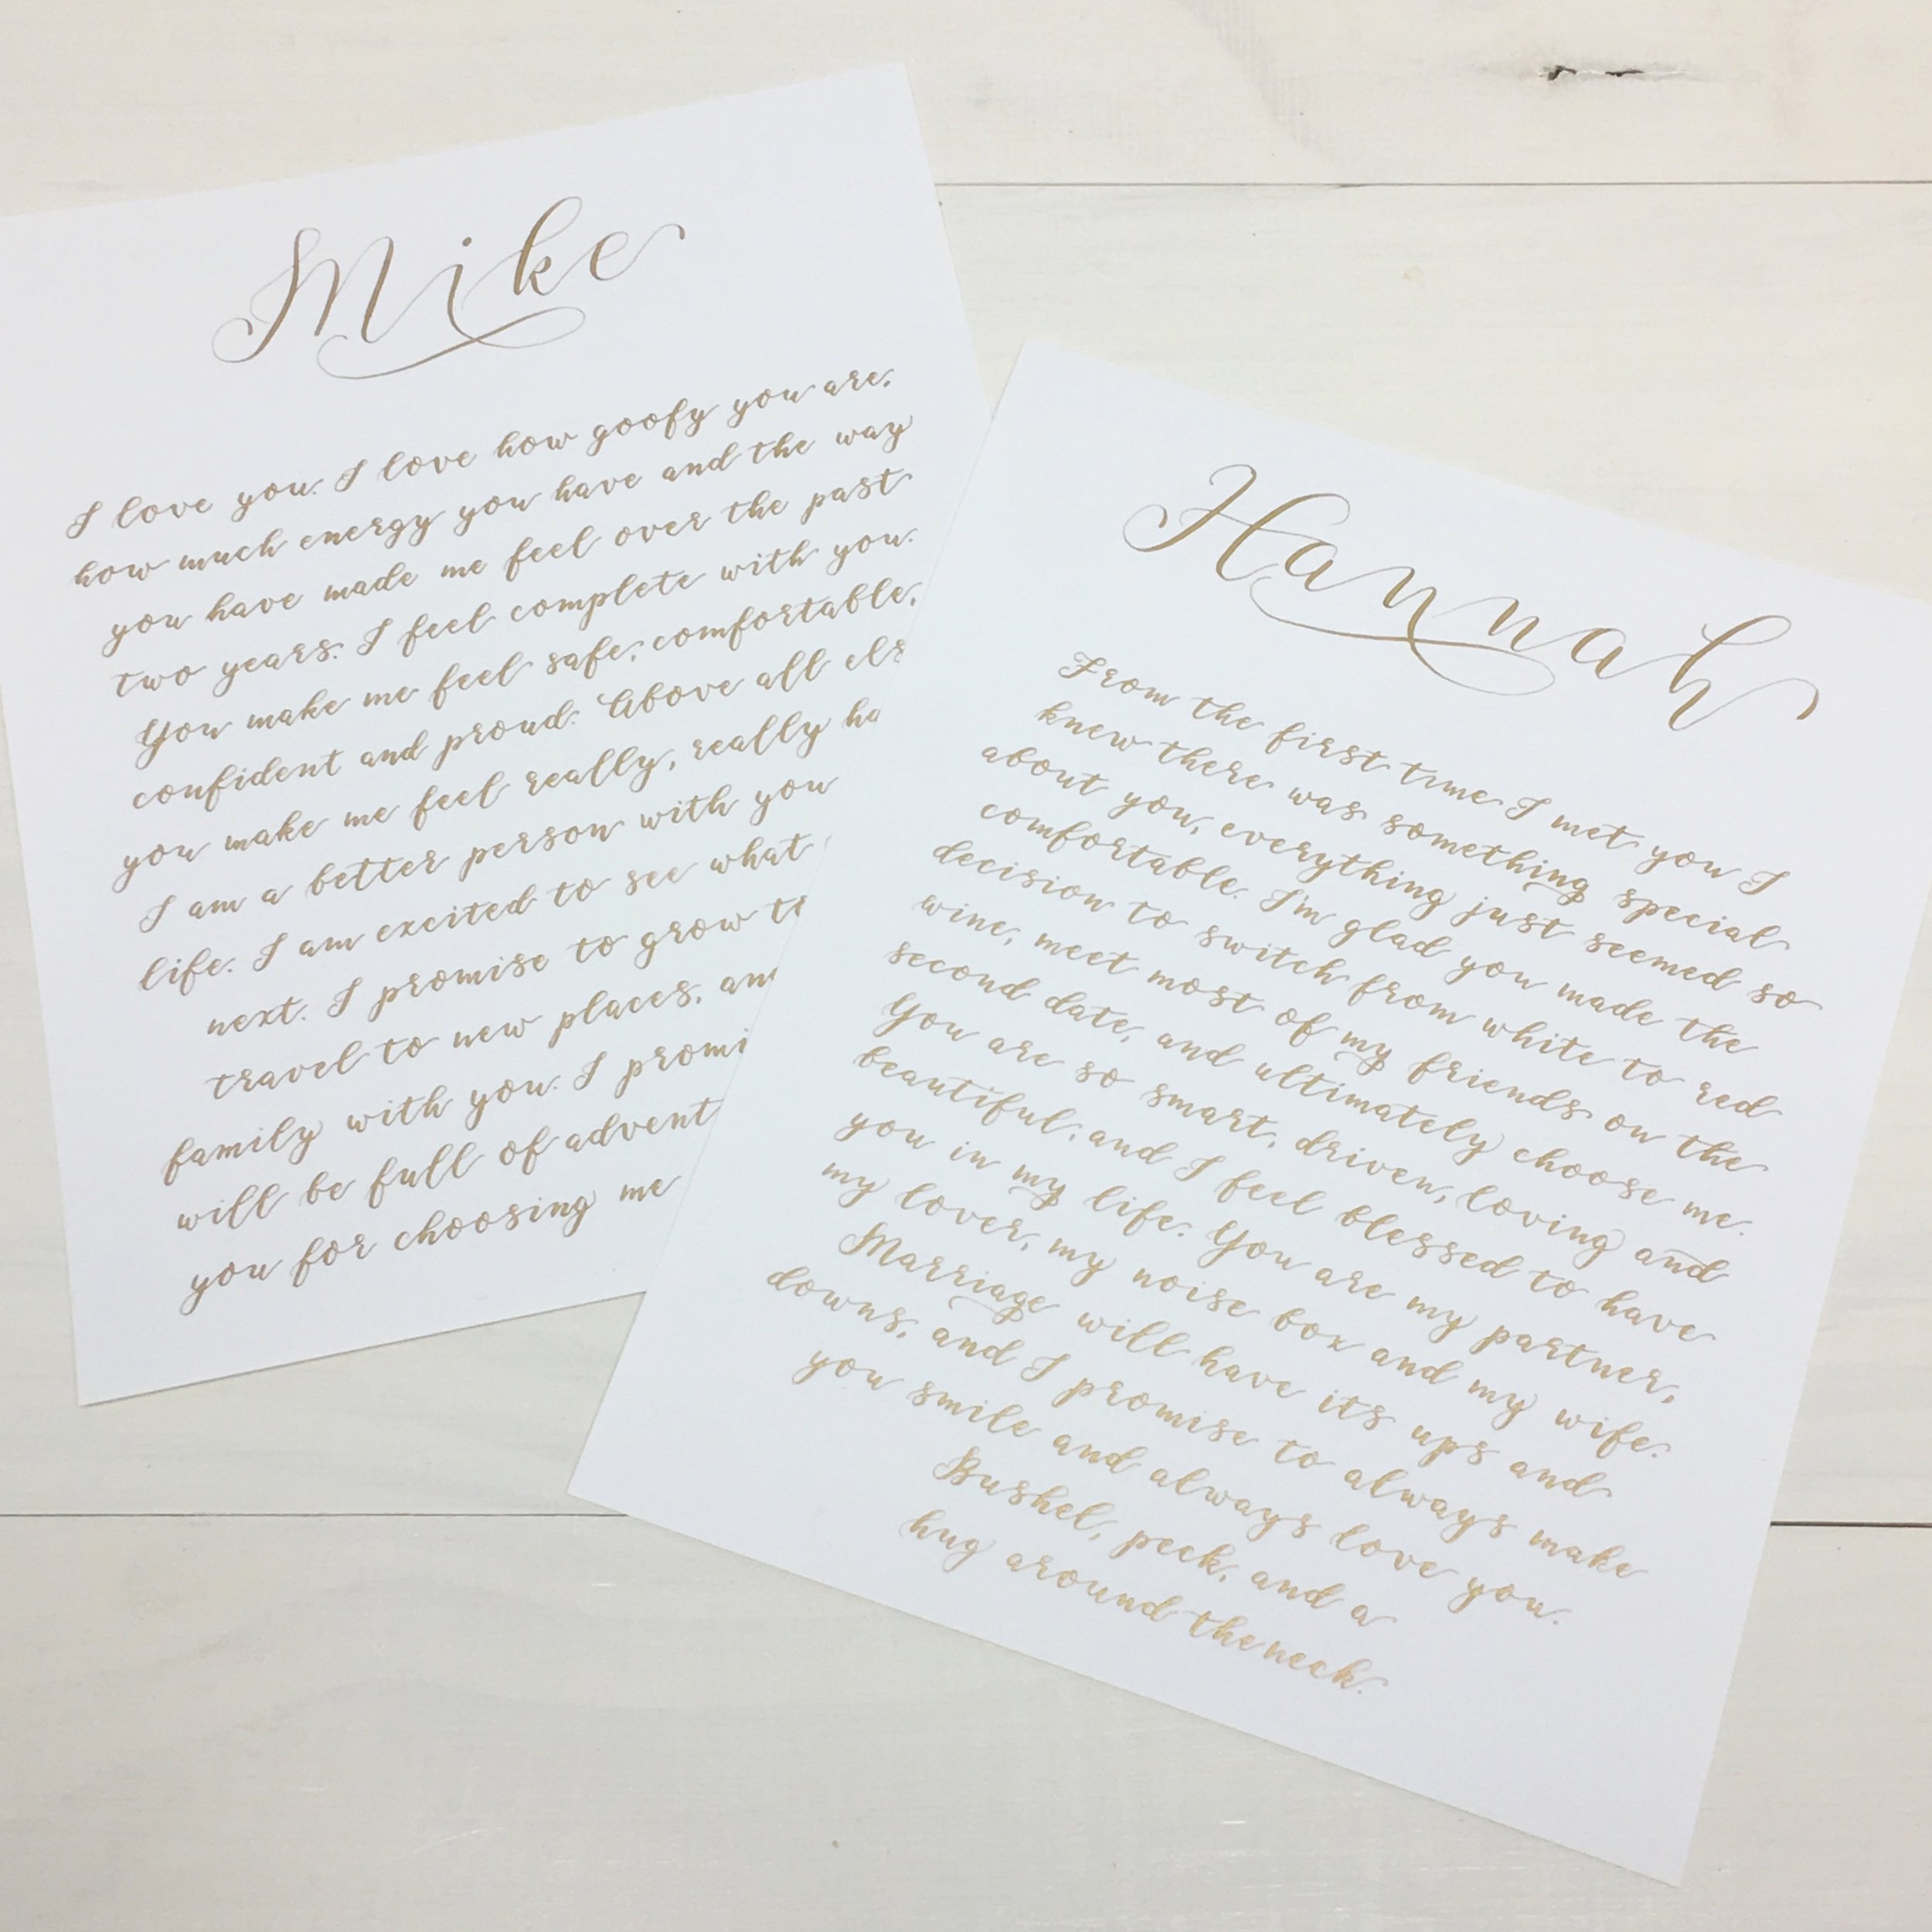 Mike
I love you. I love how goofy you are,
how much energy you have and the way
you have made me feel over the past
two years. I feel complete with you.
You make me feel safe, comfortable,
confident and proud. Above all els
you make me feel really, really ha
I am a better person with you
life. I am excited to see what
next. I promise to grow
travel to new places, and
family with you. I promi
will be full of advent
you for choosing me
Hannah
From the first time I met you I
knew there was something special
about you, everything just seemed so
comfortable. I'm glad you made the
decision to switch from white to red
wine, meet most of my friends on the
second date, and ultimately choose me.
You are so smart, driven, loving and
beautiful, and I feel blessed to have
you in my life. You are my partner,
my lover, my noise box and my wife.
Marriage will have its ups and
downs, and I promise to always make
you smile and always love you.
Bushel, peck, and a
hug around the neck.